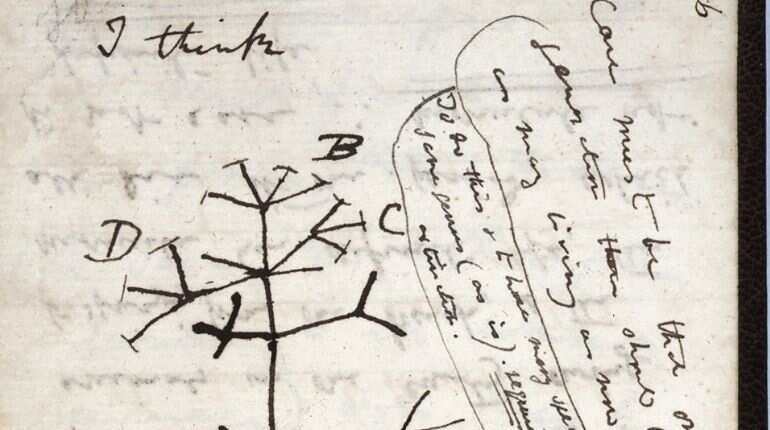 I think
6
Case must be that on
generation then should
as many living as now
To do this & to have many spe
same genus (as is). requir
extinction.
B
C
D